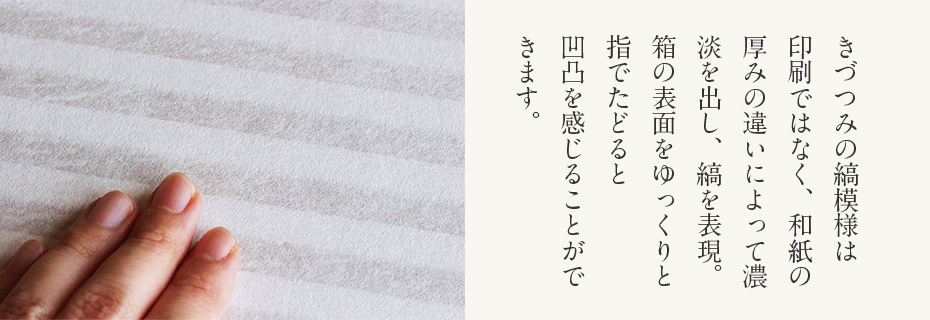 きづつみの縞模様は
印刷ではなく、和紙の
厚みの違いによって濃
淡を出し、縞を表現。
箱の表面をゆっくりと
指でたどると
凹凸を感じることがで
きます。